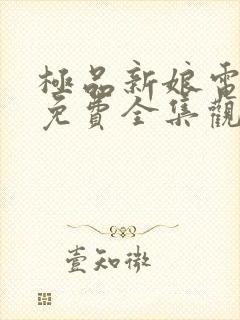 極品新娘電
免費全集觀
壹知微